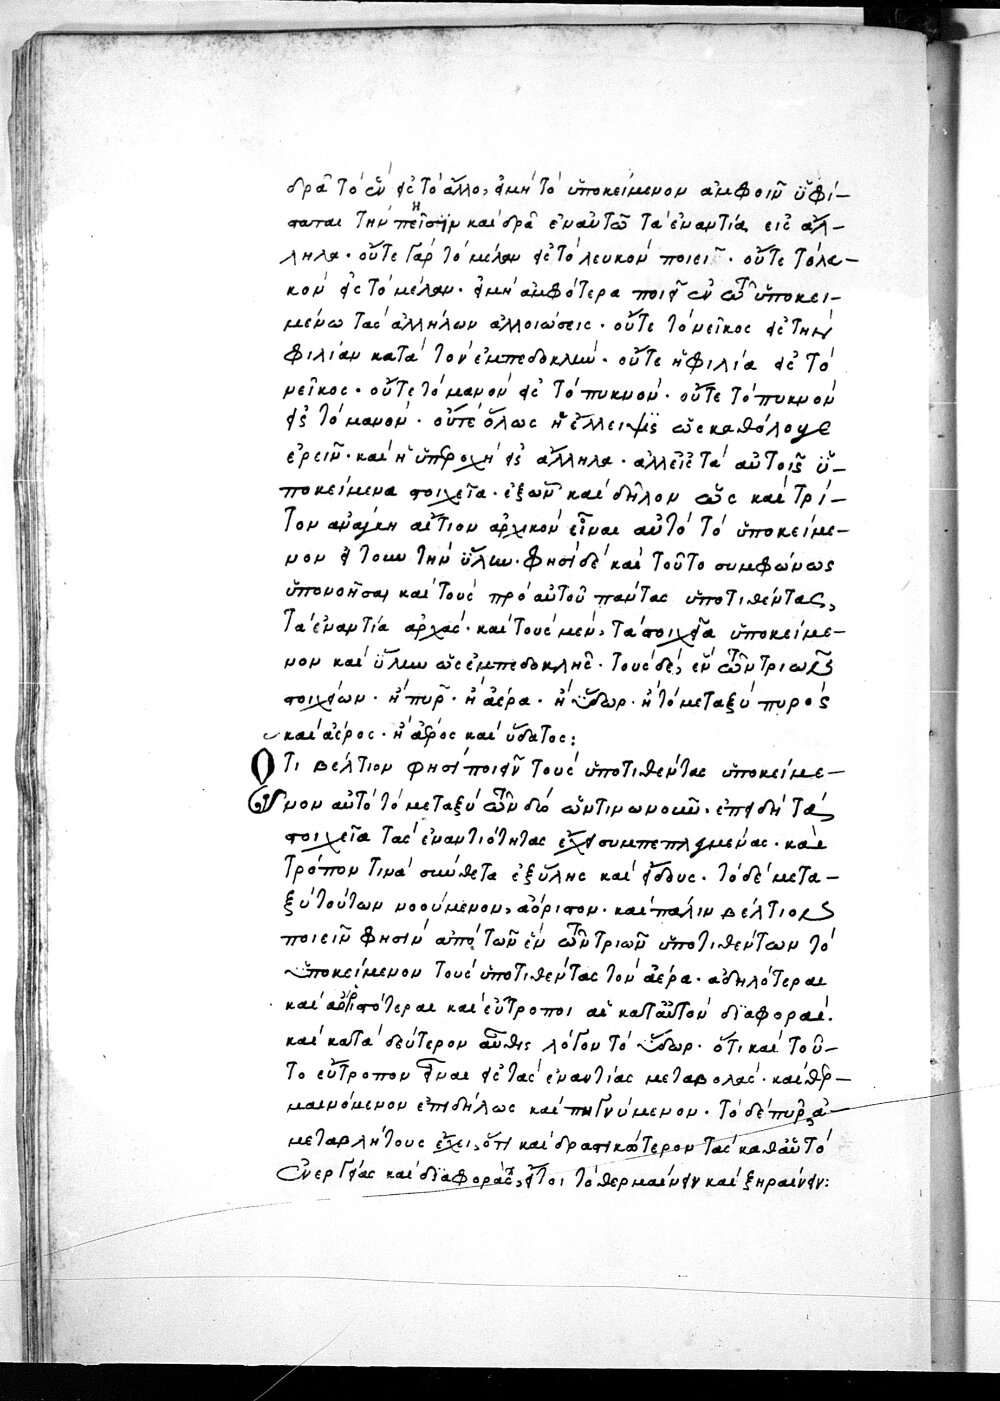 δρᾶ τὸ ἓν εἰς τὸ ἄλλο, εἰ μὴ τὸ ὑποκείμενον ἀμφοῖν ὑφί-
σταται τὴν πεῖσιν καὶ δρᾶ ἐν αὐτῶ τὰ ἐναντία εἰς ἄλ-
ληλα· οὔτε γὰρ τὸ μέλαν εἰς τὸ λευκὸν ποιεῖ· οὔτε τὸ λευ-
κὸν εἰς τὸ μέλαν· εἰ μὴ ἀμφότερα ποιεῖ ἐν τῶ ὑποκει-
μένω τὰς ἀλλήλων ἀλλοιώσεις· οὔτε τὸ νεῖκος εἰς τὴν
φιλίαν κατὰ τὸν ἐμπεδοκλῆν· οὔτε ἡ φιλία εἰς τὸ
νεῖκος· οὔτε τὸ μανὸν εἰς τὸ πυκνόν· οὔτε τὸ πυκνὸν
εἰς τὸ μανόν· οὔτε ὅλως ἡ ἔλλειψις ὡς καθόλου
ἐρεῖν· καὶ ἡ ὑπεροχὴ εἰς ἄλληλα· ἀλλ' εἰς τὰ αὐτοῖς ὑ-
ποκείμενα στοιχεῖα· ἐξ ὧν καὶ δῆλον ὡς καὶ τρί-
τον ἀνάγκη αἴτιον ἀρχικὸν εἶναι αὐτὸ τὸ ὑποκείμε-
νον ἤτουν τὴν ὕλην· φησὶ δὲ καὶ τοῦτο συμφώνως
ὑπονοῆσαι καὶ τοὺς πρὸ αὐτοῦ πάντας ὑποτιθέντας,
τὰ ἐναντία ἀρχάς· καὶ τοὺς μὲν, τὰ στοιχεῖα ὑποκείμε-
νον καὶ ὕλην ὡς ἐμπεδοκλῆς· τοὺς δὲ, ἓν τῶν τριῶν
στοιχείων· ἢ πῦρ· ἢ ἀέρα· ἢ ὕδωρ· ἢ τὸ μεταξὺ πυρὸς
καὶ ἀέρος· ἢ ἀέρος καὶ ὕδατος:
Ὅτι βέλτιον φησὶ ποιεῖν τοὺς ὑποτιθέντας ὑποκείμε-
νον αὐτὸ τὸ μεταξὺ τῶν δύο ὧντινωνοῦν· ἐπειδὴ τὰ
στοιχεῖα τὰς ἐναντιότητας ἔχει συμπεπλεγμένας· καὶ
τρόπον τινὰ σύνθετα ἐξ ὕλης καὶ εἴδους· τὸ δὲ μετα-
ξὺ τούτων νοούμενον, ἀόριστον· καὶ πάλιν βέλτιον
ποιεῖν φησὶν ἀπὸ τῶν ἓν τῶν τριῶν ὑποτιθέντων τὸ
ὑποκείμενον τοὺς ὑποτιθέντας τὸν ἀέρα· ἀδηλότεραι
καὶ ἀοριστότεραι καὶ εὔτροποι αἱ κατ' αὐτὸν διαφοραί·
καὶ κατὰ δεύτερον αὖθις λόγον τὸ ὕδωρ· ὅτι καὶ τοῦ-
το εὔτροπον εἶναι εἰς τὰς ἐναντίας μεταβολάς· καὶ θερ-
μαινόμενον ἐπιδήλως καὶ πηγνύμενον· τὸ δὲ πῦρ, ἀ-
μεταβλήτους ἔχει, ὅτι καὶ δραστικώτερον τὰς καθ' αὑτὸ
ἐνεργείας καὶ διαφοράς, ἤτοι τὸ θερμαίνειν καὶ ξηραίνειν: